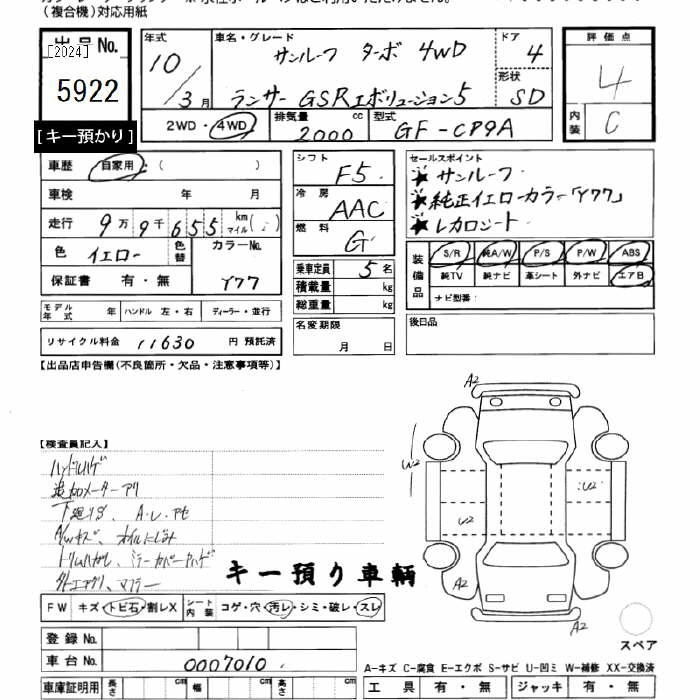 (複合機)対応用紙
出品No.
[2024]
5922
[キー預かり]
年式
10/3月
車名・グレード
サンルーフ ターボ 4WD
ランサー GSRエボリューション5
ドア
4
形状
SD
2WD・4WD
排気量
2000 cc
型式
GF-CP9A
評価点
4
内装
C
車歴 自家用 ( )
車検 年 月
走行 9万9千655 km マイル ( )
色 イエロー 色替 カラーNo.
保証書 有・無 Y77
モデル年式 年 ハンドル 左・右 ディーラー・並行
リサイクル料金 11630 円 預託済
シフト F5
冷房 AAC
燃料 G
乗車定員 5名
積載量 kg
総重量 kg
名変期限
月 日
セールスポイント
★サンルーフ
★純正イエローカラー「Y77」
★レカロシート
装備品
S/R 純A/W P/S P/W ABS
純TV 純ナビ 革シート 外ナビ エアB
ナビ型番:
後日品
【出品店申告欄(不良箇所・欠品・注意事項等)】
【検査員記入】
ハンドルハゲ
追加メーターアリ
下廻りS、A・L・アセ
オイルにじみ
マフラー
キー預り車輌
A2
W2
U2
U2
A2
A2
FW キズ・トビ石・割レX シート内装 コゲ・穴・汚レ・シミ・破レ・スレ
登録No.
車台No. 0007010
車庫証明用 長さ cm 幅 cm 高さ cm
スペア
A-キズ C-腐食 E-エクボ S-サビ U-凹ミ W-補修 XX-交換済
工具 有・無 ジャッキ 有・無